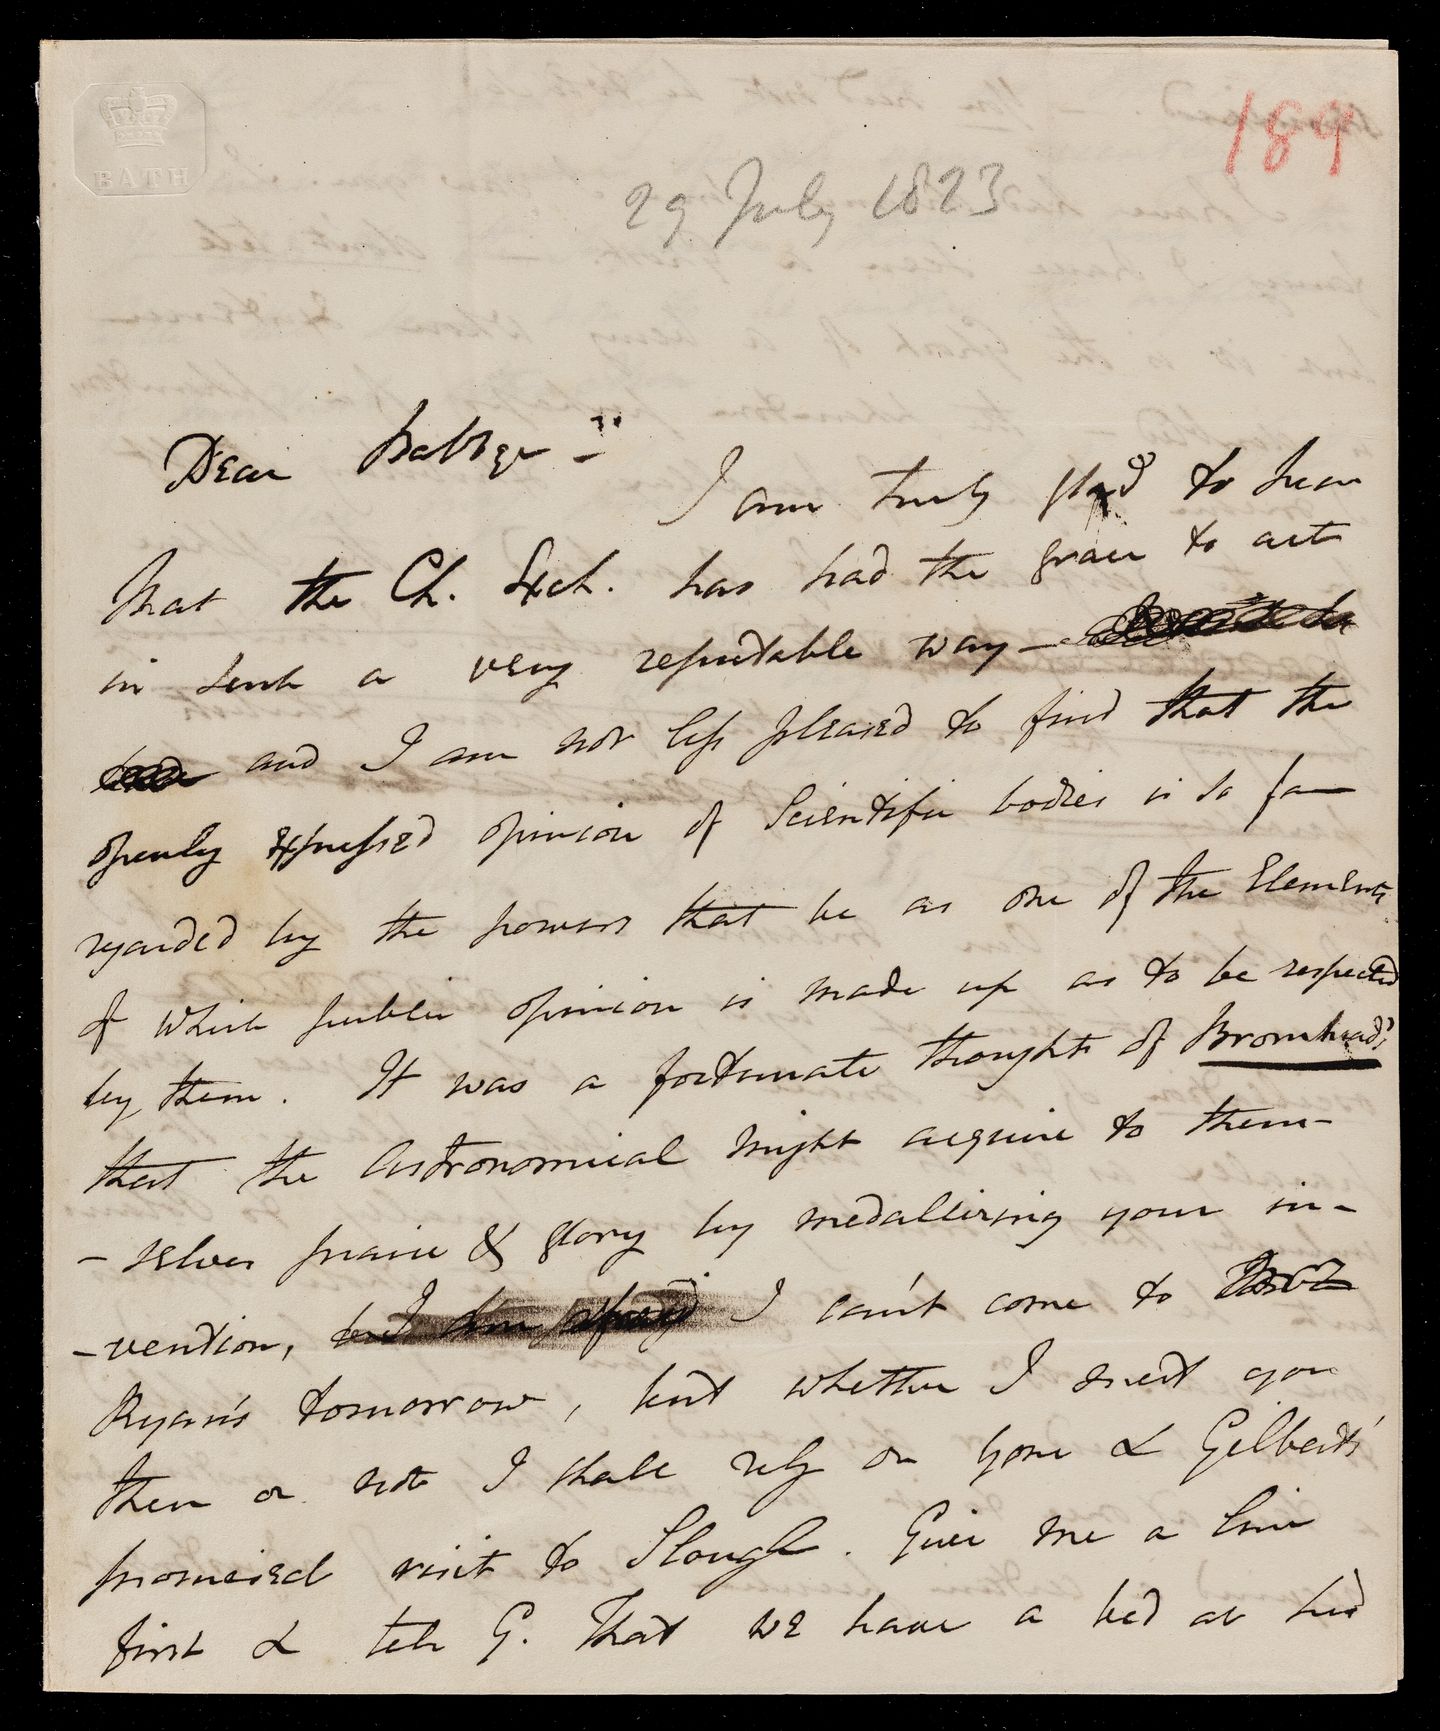 BATH
189
29 July 1823
Dear Babbage -
I am truly glad to hear
that the Ch. Exch. has had the grace to act
in such a very reputable way -
and I am not less pleased to find that the
openly expressed opinion of Scientific bodies is so far
regarded by the powers that be as one of the Elements
of which public opinion is made up as to be respected
by them. It was a fortunate thought of Bromhead's
that the Astronomical might acquire to them-
-selves praise & glory by medallizing your in-
-vention, but I am afraid I can't come to
Ryan's tomorrow, but whether I meet you
there or not I shall rely on your & Gilbert's
promised visit to Slough. Give me a line
first & tell G. that we have a bed at his